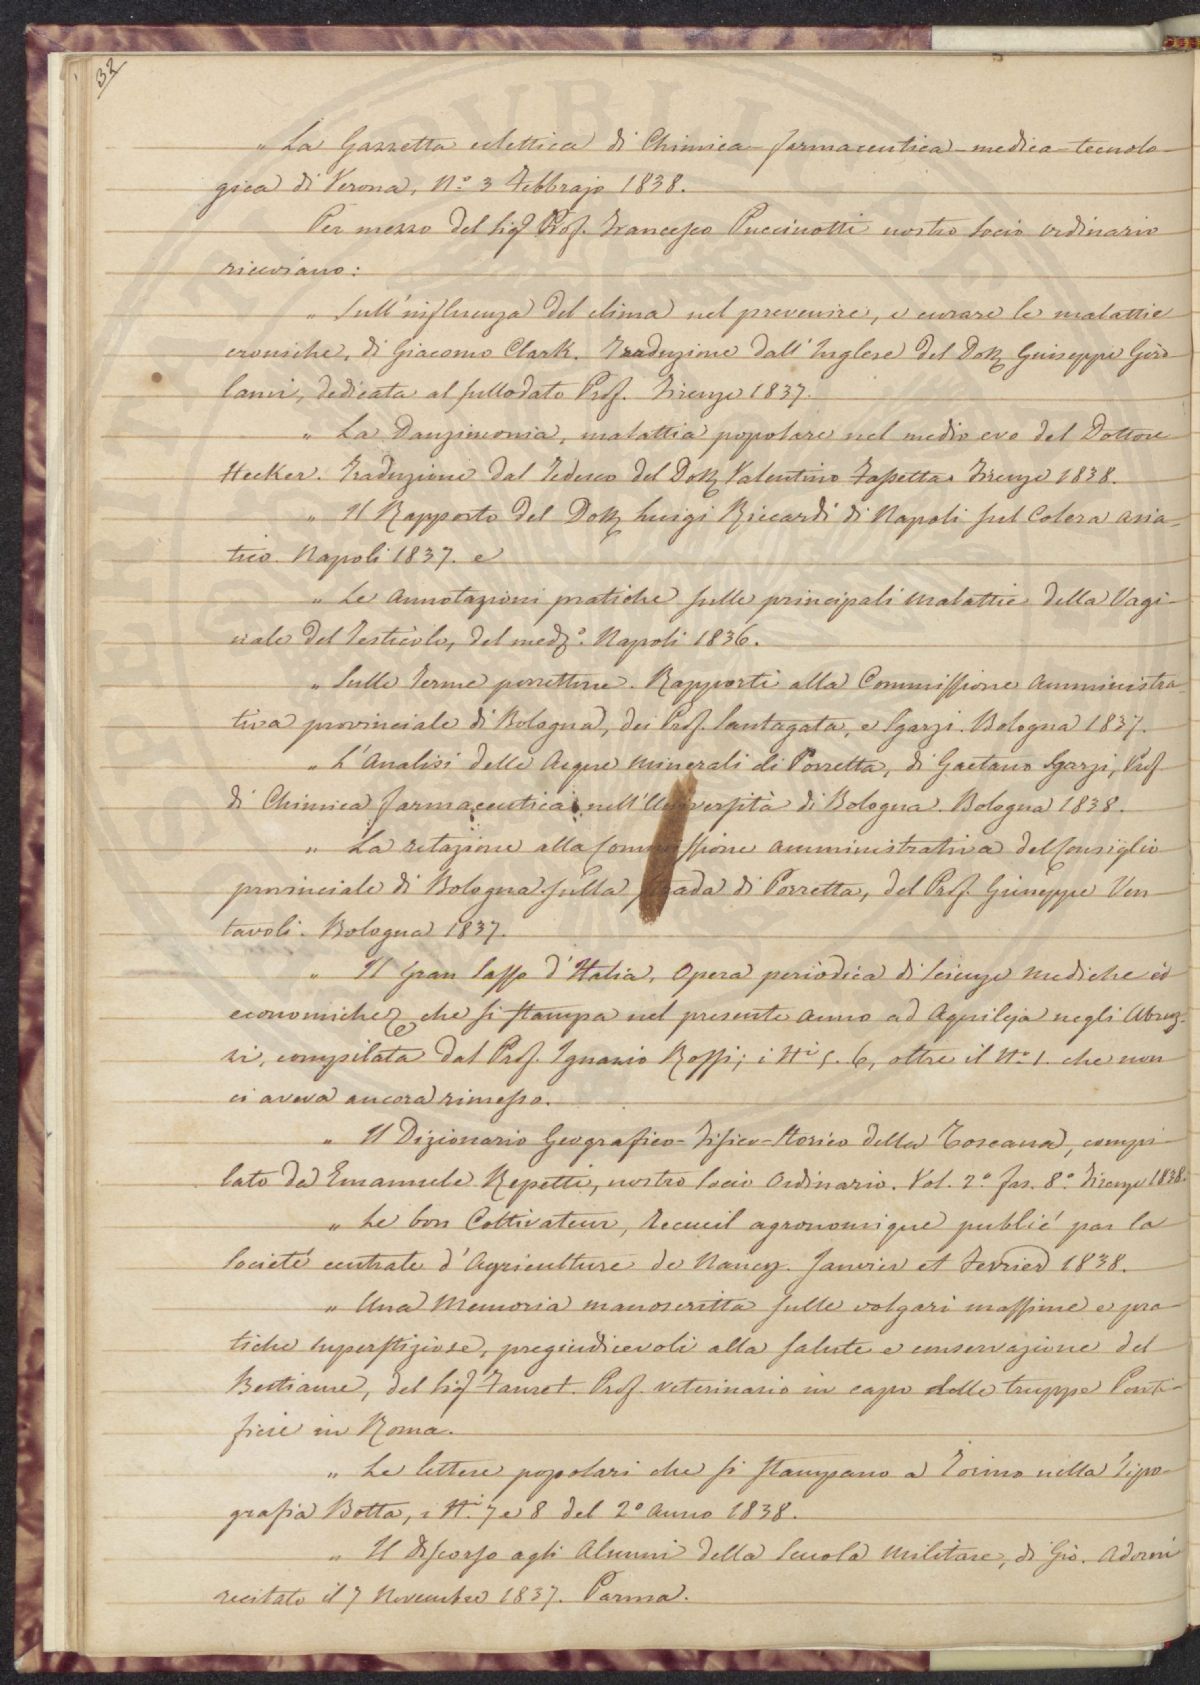 32
„ La Gazzetta eclettica di Chimica-farmaceutica-medica-tecnolo-
gica di Verona, N.º 3 Febbrajo 1838.
Per mezzo del Sig.r Prof. Francesco Puccinotti nostro Socio ordinario
riceviamo:
„ Sull'influenza del clima nel prevenire, e curare le malattie
croniche, di Giacomo Clark. Traduzione dall'Inglese del Dott. Guiseppe Giro
lami, dedicata al sullodato Prof. Firenze 1837.
„ La Danzimania, malattia popolare nel medio evo del Dottore
Hecker. Traduzione dal Tedesco del Dott. Valentino Fassetta. Firenze 1838.
„ Il Rapporto del Dott. Luigi Riccardi di Napoli sul Colera asia-
tico. Napoli 1837. e
„ Le Annotazioni pratiche sulle principali malattie della Vagi-
nale del Testicolo, del med.º Napoli 1836.
„ Sulle Terme porrettane. Rapporti alla Commissione Amministra-
tiva provinciale di Bologna, dei Prof. Santagata, e Sgarzi. Bologna 1837.
„ L'Analisi delle Acque minerali di Porretta, di Gaetano Sgarzi, Prof.
di Chimica farmaceutica nell'Università di Bologna. Bologna 1838.
„ La relazione alla Commissione amministrativa del Consiglio
provinciale di Bologna sulla strada di Porretta, del Prof. Giuseppe Ven
tavoli. Bologna 1837.
„ Il Gran Sasso d'Italia, Opera periodica di Scienze mediche ed
economiche, che si stampa nel presente anno ad Aquileja negli Abruz-
zi, compilata dal Prof. Ignazio Rossi; i N.i 5. 6, oltre il N.º 1. che non
ci aveva ancora rimesso.
„ Il Dizionario Geografico-Fisico-Storico della Toscana, compi-
lato da Emanuele Repetti, nostro Socio Ordinario. Vol. 2.º fas. 8.º Firenze 1838.
„ Le bon Cultivateur, Recueil agronomique publié par la
Societé centrale d'Agriculture de Nancy. Janvier et Fevrier 1838.
„ Una Memoria manoscritta sulle volgari massime e pra-
tiche superstiziose, pregiudicevoli alla salute e conservazione del
Bestiame, del Sig.r Fauret. Prof. veterinario in capo delle truppe Ponti-
ficie in Roma.
„ Le lettere popolari che si stampano a Torino nella Tipo-
grafia Botta, i N.i 7 e 8 del 2º anno 1838.
„ Il discorso agli Alunni della Scuola Militare, di Gio. Adorni
recitato il 7 Novembre 1837. Parma.